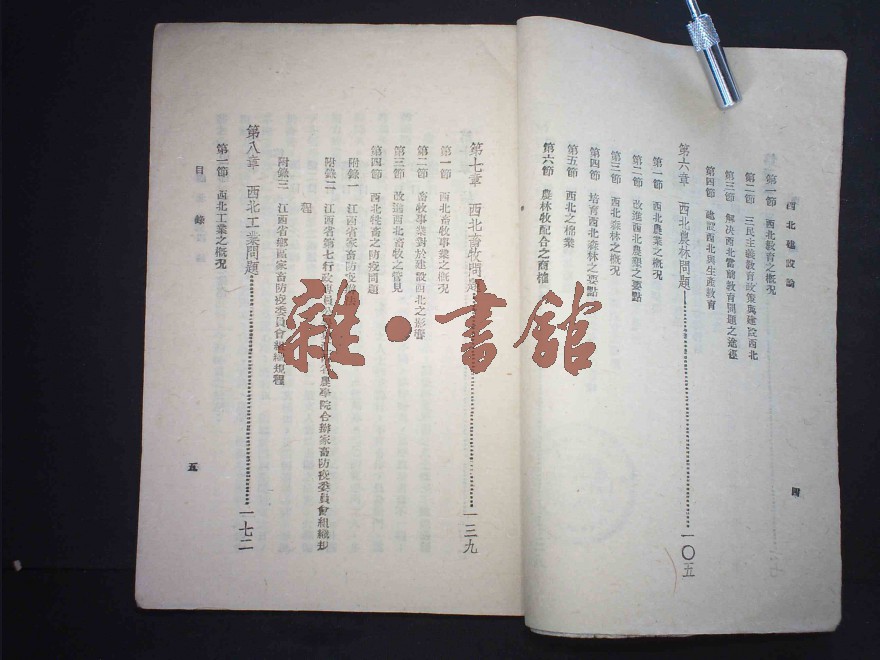 西北建設論
第一節 西北教育之概況
第二節 三民主義教育政策與建設西北
第三節 解決西北當前教育問題之途徑
第四節 建設西北與生產教育
第六章 西北農林問題 一〇五
第一節 西北農業之概況
第二節 改進西北農業之要點
第三節 西北森林之概況
第四節 培育西北森林之要點
第五節 西北之棉業
第六節 農林牧配合之商榷
四
第七章 西北畜牧問題 一三九
第一節 西北畜牧事業之概況
第二節 畜牧事業對於建設西北之影響
第三節 改進西北畜牧之管見
第四節 西北牲畜之防疫問題
附錄一 江西省家畜防疫
附錄二 江西省第七行政專員 農學院合辦家畜防疫委員會組織規
程
附錄三 江西省鄉區家畜防疫委員會組織規程
第八章 西北工業問題 一七二
第一節 西北工業之概況
目錄
五
雜·書館